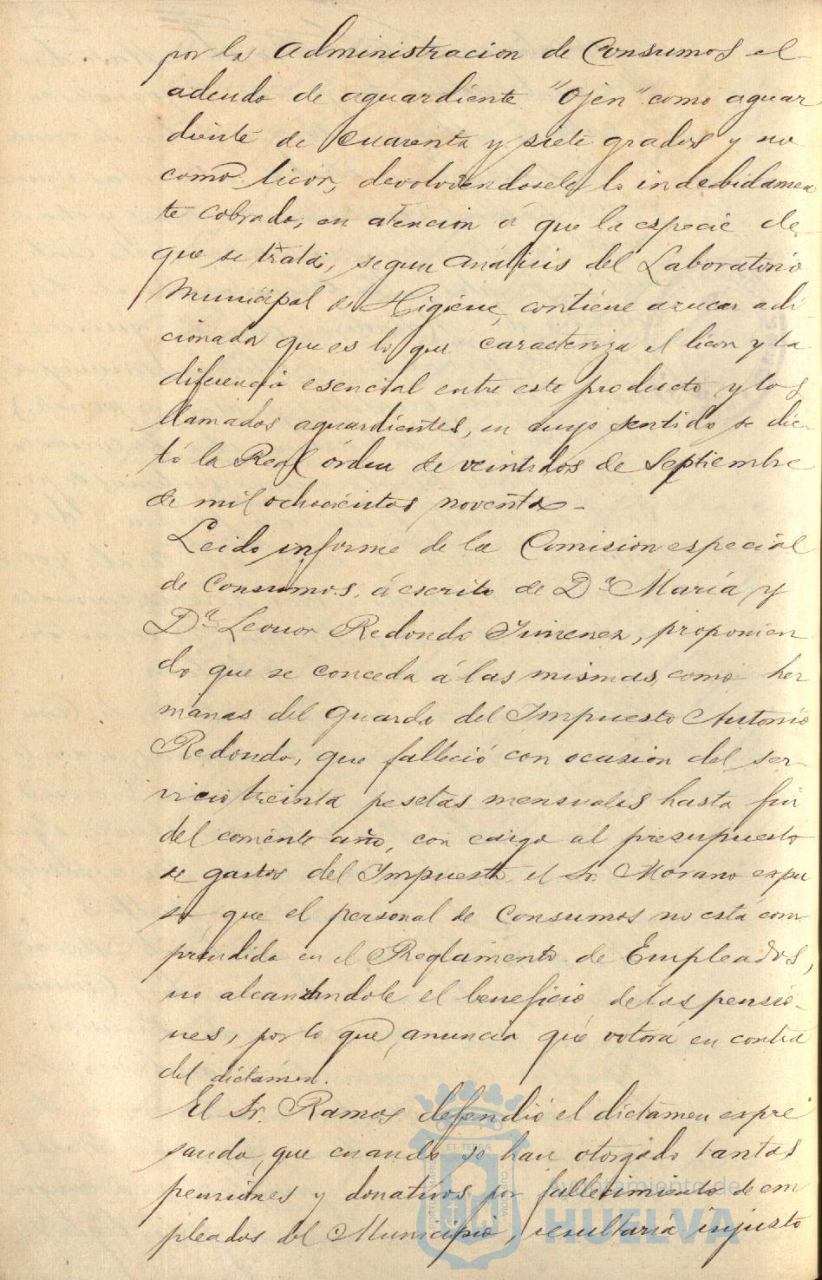 por la Administracion de Consumos el
adeudo de aguardiente "Ojen" como aguar
diente de cuarenta y siete grados y no
como licor, devolviendosele lo indebidamen
te cobrado, en atencion á que la especie de
que se trata, segun análisis del Laboratorio
Municipal de Higiene, contiene azucar adi
cionada que es lo que caracteriza el licor y la
diferencia esencial entre este producto y los
llamados aguardientes, en cuyo sentido se dic
tó la Real órden de veintidos de Septiembre
de mil ochocientos noventa.
Leido informe de la Comision especial
de Consumos, á escrito de Dª María y
Dª Leonor Redondo Jimenez, proponien
do que se conceda á las mismas como her
manas del guarda del Impuesto Antonio
Redondo, que falleció con ocasion del ser-
vicio treinta pesetas mensuales hasta fin
del corriente año, con cargo al presupuesto
de gastos del Impuesto, el Sr. Morano expu
so que el personal de Consumos no está com
prendido en el Reglamento de Empleados,
no alcanzandole el beneficio de las pensio-
nes, por lo que anuncia que votará en contra
del dictámen.
El Sr. Ramos defendió el dictamen expre
sando, que cuando se han otorgado tantas
pensiones y donativos por fallecimiento de em
pleados del Municipio, resultaria injusto
Ayuntamiento de
HUELVA